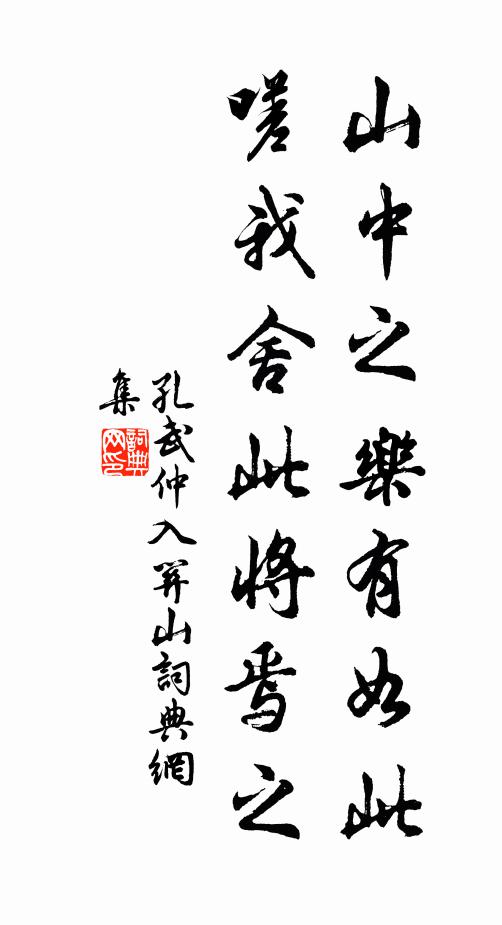 山中之樂有如此
嗟我舍此將焉之
孔武仲入羿山詞典網
集
詞典網印